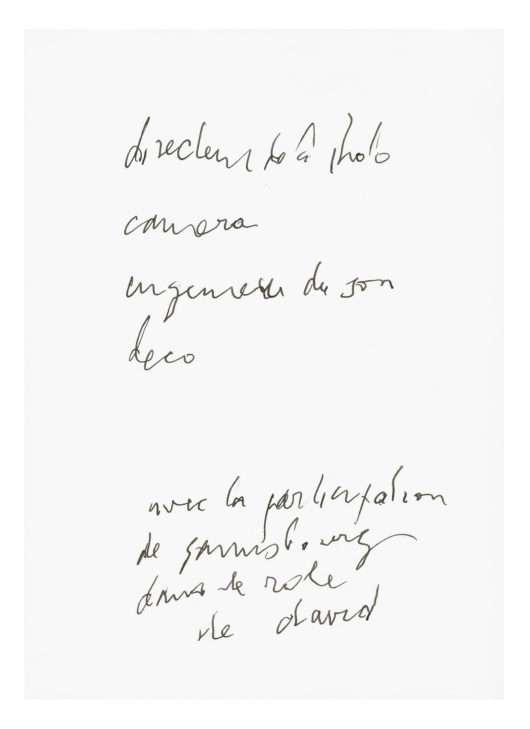 directeur de la photo
camera
ingenieur du son
deco
avec la participation
de gainsbourg
dans le role
de david